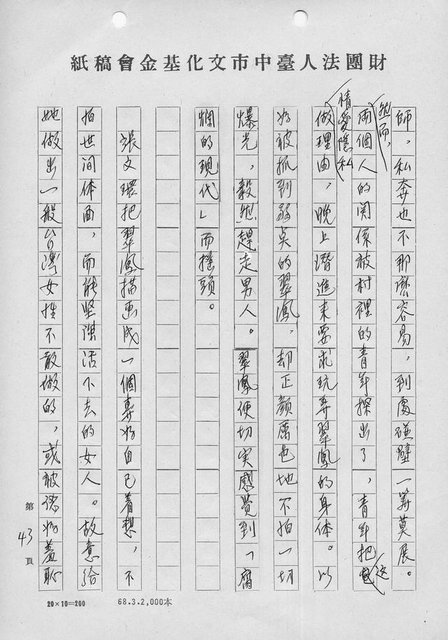 財團法人臺中市文化基金會稿紙
師，私奔也不那麼容易，到處碰壁一籌莫展。
然而，
兩個人的關係被村裡的青年探出了，青年把這
情愛隱私
做理由，晚上潛進來要求玩弄翠鳳的身体。以
為被抓到弱点的翠鳳，却正顏厲色地不拍一切
爆光，毅然趕走男人。翠鳳便切实感覺到「腐
爛的現代」而搖頭。
張文環把翠鳳描画成一個專為自己着想，不
拍世间体面，而能堅強活下去的女人。故意给
她做出一般台灣女性不敢做的，或被認為羞恥
第43頁
20×10=200
68.3.2,000本